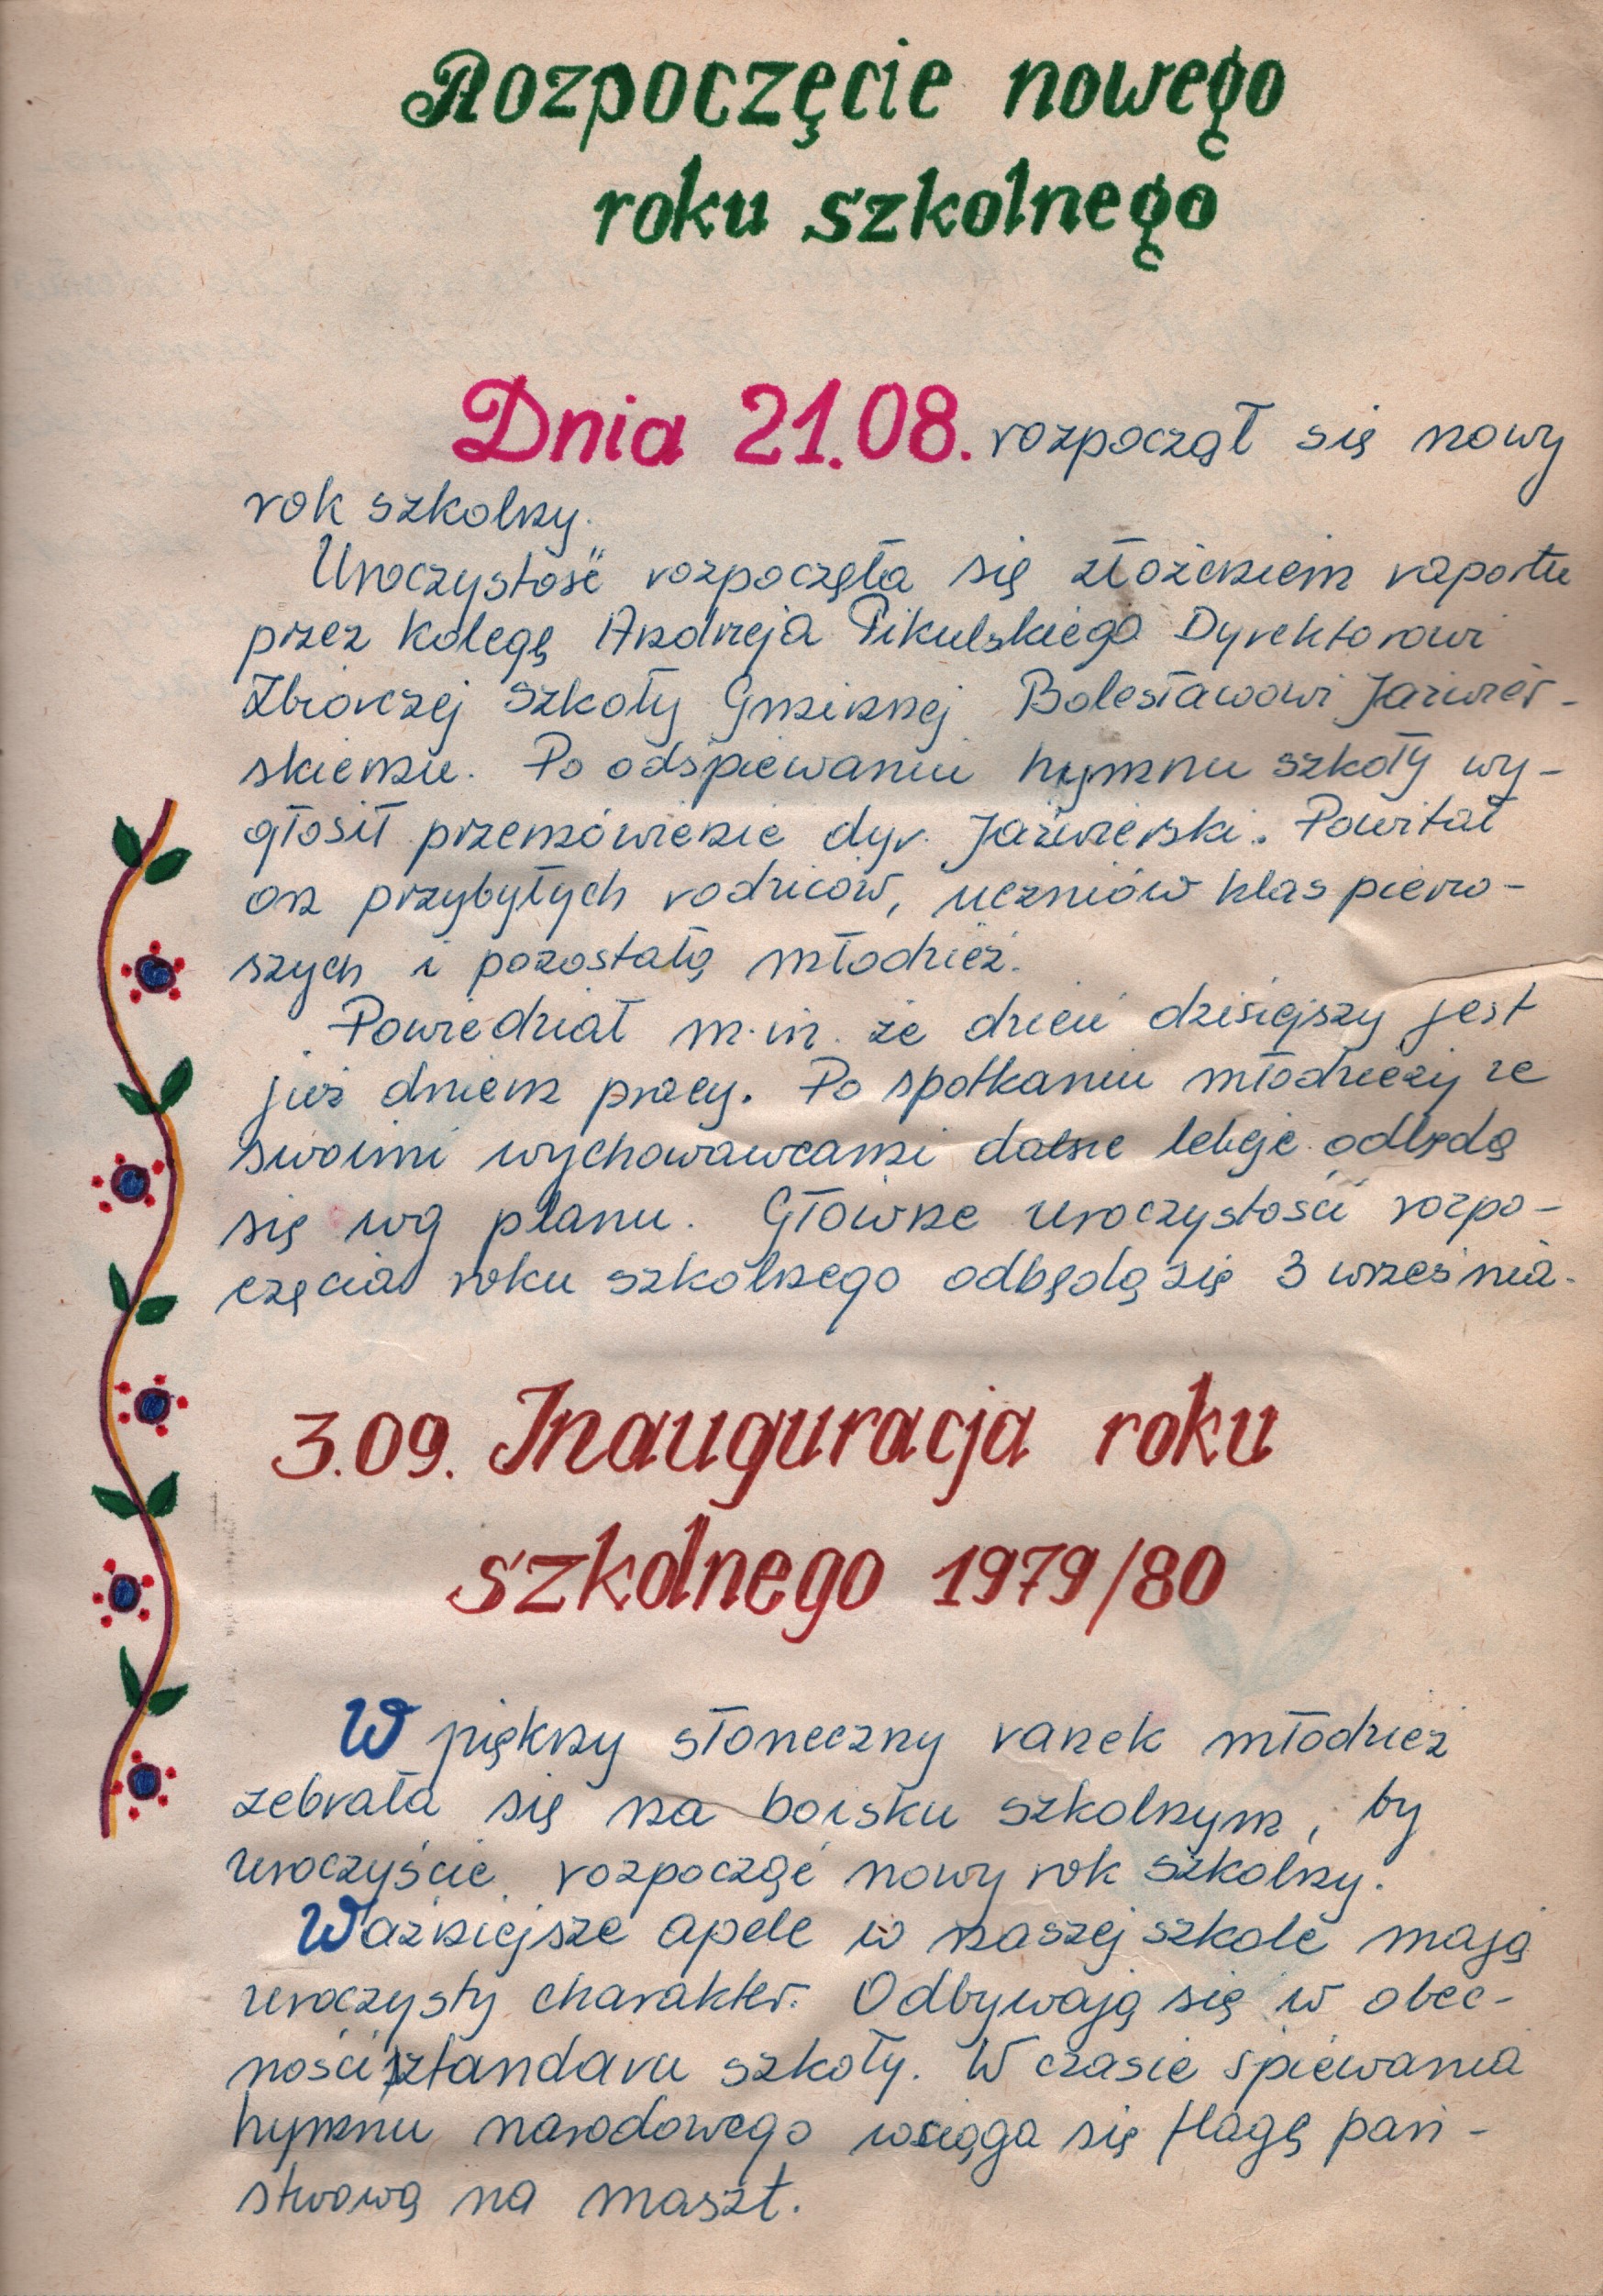 Rozpoczęcie nowego
roku szkolnego
Dnia 21.08. rozpoczął się nowy
rok szkolny.
Uroczystość rozpoczęła się złożeniem raportu
przez kolegę Andrzeja Pikulskiego Dyrektorowi
Zbiorczej Szkoły Gminnej Bolesławowi Jaźwier-
skiemu. Po odśpiewaniu hymnu szkoły wy-
głosił przemówienie dyr. Jaźwierski. Powitał
on przybyłych rodziców, uczniów klas pierw-
szych i pozostałą młodzież.
Powiedział m.in. że dzień dzisiejszy jest
już dniem pracy. Po spotkaniu młodzieży ze
swoimi wychowawcami dalsze lekcje odbędą
się wg planu. Główne uroczystości rozpo-
częcia roku szkolnego odbędą się 3 września.
3.09. Inauguracja roku
szkolnego 1979/80
W piękny słoneczny ranek młodzież
zebrała się na boisku szkolnym, by
uroczyście rozpocząć nowy rok szkolny.
Ważniejsze apele w naszej szkole mają
uroczysty charakter. Odbywają się w obec-
ności sztandaru szkoły. W czasie śpiewania
hymnu narodowego wciąga się flagę pań-
stwową na maszt.